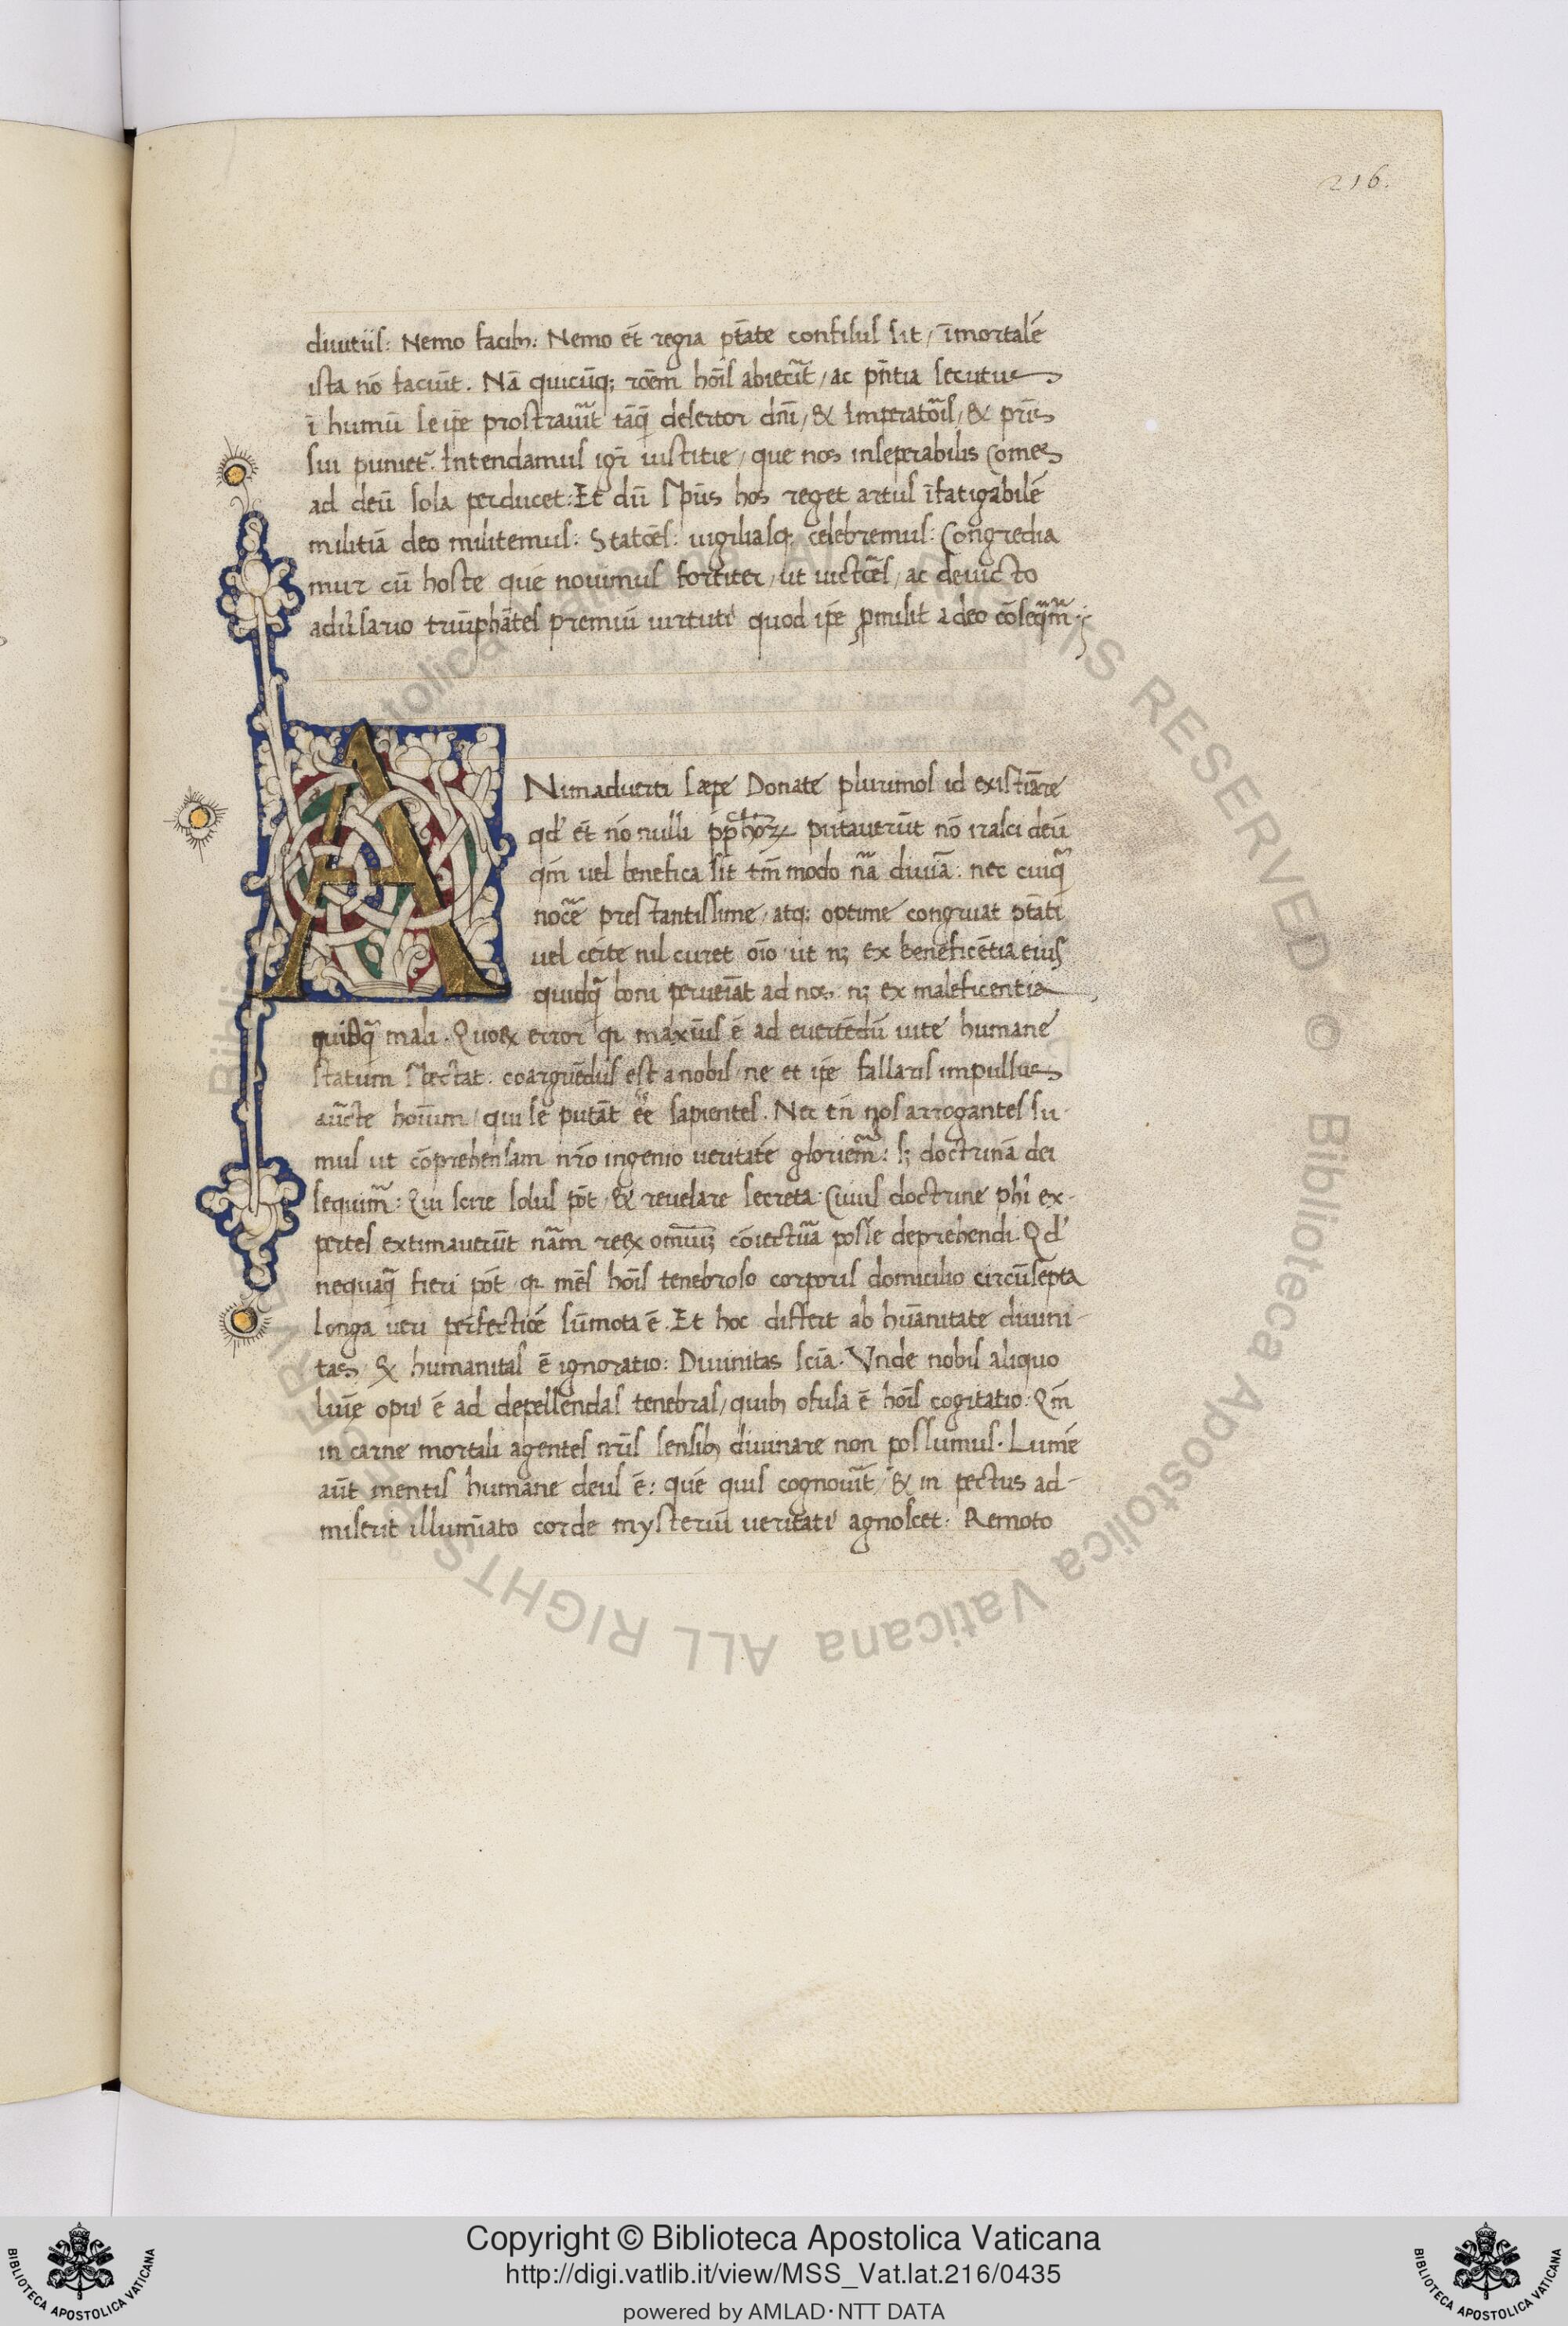 216.
diuitiis: Nemo facib;: Nemo et̄ regia ptāte confisus sit / īmortalē
ista nō faciūt. Nā quicūq; roēm hoīs abiecūt / ac pn̄tia secutus
ī humū se ip̄e prostrauūt tāq̄ desertor dn̄i / & Imperatoīs / & prīs
sui puniet̄. Intendamus igr̄ iustitie / que nos inseperabilis Comes
ad deū sola perducet: Et dū sp̄us hos reget artus īfatigabilē
militiā deo militemus: Statōes: uigiliasq; celebremus: Congredia
mur cū hoste quē nouimus fortiter / ut uictōes / ac deuicto
aduʼsario triūphātes premiū uirtutiʼ quod ip̄e ꝓmisit a deo cōseqm̄r
ANimaduerti sæpe Donate plurimos id existiāre
qdʼ et̄ nō nulli pphoꝝ putauerūt nō irasci deū
qm̄ uel benefica sit tm̄ modo nā diuiā: nec cuiq̄
nocē prestantissime / atq; optime congruat ptāti
uel certe nil curet oīo ut nʒ ex beneficētia eius
quidq̄ boni perueiāt ad nos nʒ ex maleficentia
quidq̄ mali. Quoꝝ error qꝛ maxīus ē ad euertēdū uite humane
statum spectat. coarguēdus est a nobis ne et ip̄e fallaris impulsus
aūcte hoīum / qui se putāt eē sapientes. Nec tn̄ nos arrogantes su-
mus ut cōprehensam nr̄o ingenio ueritatē gloriem̄: sʒ doctrinā dei
sequim̄: Qui scire solus pōt / & reuelare secreta: Cuius doctrine phī ex-
pertes extimauerūt nām reꝝ omīuʒ cōiectuā posse deprehendi. Qdʼ
nequaq̄ fieri pōt qꝛ mēs hoīs tenebroso corporis domicilio circūsepta
longa ueri perfectiōe sūmota ē. Et hoc differt ab huānitate diuini-
tas / & humanitas ē ignoratio: Diuinitas scīa. Vnde nobis aliquo
luīe opuʼ ē ad depellendas tenebras / quib; ofusa ē hoīs cogitatio: Qm̄
in carne mortali agentes nr̄is sensib; diuinare non possumus. Lumē
aūt mentis humane deus ē: quē quis cognouīt / & in pectus ad-
miserit illumīato corde mysteriū ueritatiʼ agnoscet: Remoto
Biblioteca Apostolica Vaticana ALL RIGHTS RESERVED © Biblioteca Apostolica Vaticana ALL RIGHTS RESERVED ©
BIBLIOTECA APOSTOLICA VATICANA
Copyright © Biblioteca Apostolica Vaticana
http://digi.vatlib.it/view/MSS_Vat.lat.216/0435
powered by AMLAD·NTT DATA
BIBLIOTECA APOSTOLICA VATICANA